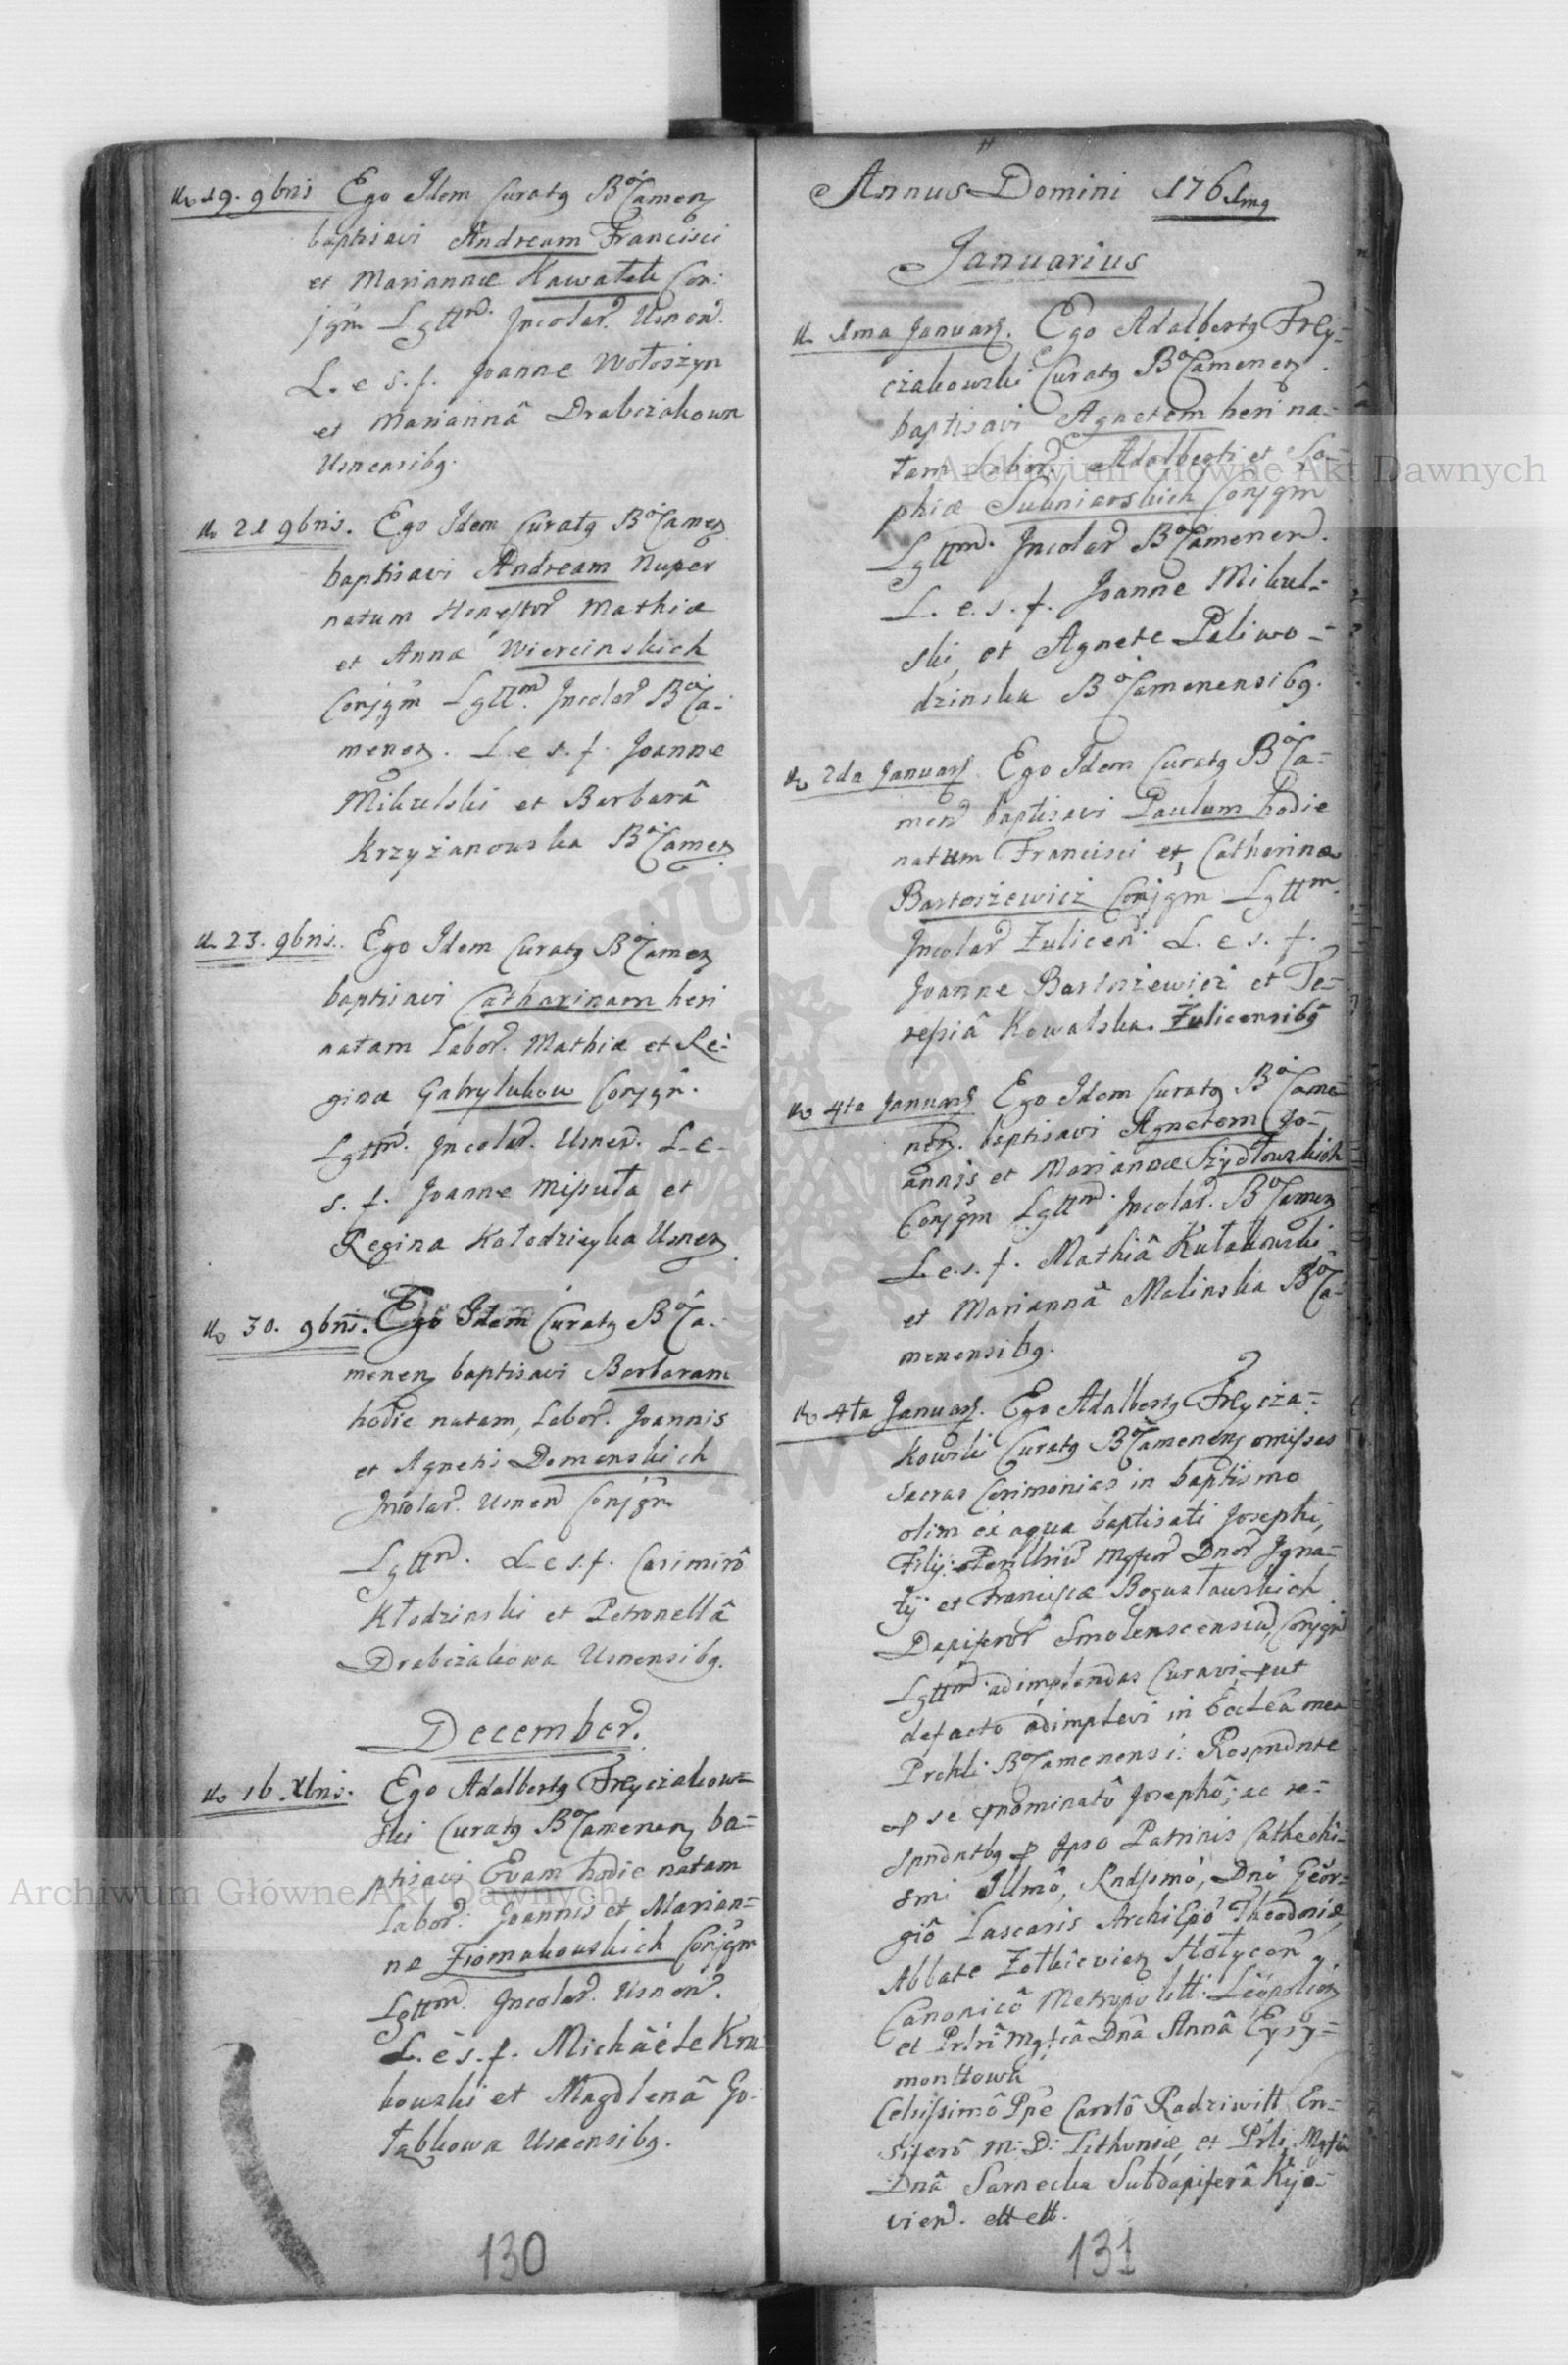 19. 9bris Ego Idem Curatg BoCamen
baptisavi Andream Francisci
et Mariannæ Kawałek Con:
jgm Lgttm. Incolar. Usnen.
L. e s. f. Joanne Wołoszyn
et Mariannâ Drabczakowa
Usnensibg.
21 9bris. Ego Idem Curatg BoCamen
baptisavi Andream nuper
natum Honestor Mathiæ
et Annæ Wiercinskich
Conjgm Lgttm. Incolar BoCa-
menen. L. e s. f. Joanne
Mikulski et Barbarâ
Krzyżanowska BoCamen
23. 9bris. Ego Idem Curatg BoCamen
baptisavi Catharinam heri
natam Labor. Mathiæ et Re-
ginæ Gabrylukow Conjgm.
Lgttm. Incolar. Usnen. L. e.
s. f. Joanne Misiuta et
Regina Kołodzieyka Usnen
30. 9bris. Ego Idem Curatg BoCa-
menen baptisavi Barbaram
hodie natam, Labor. Joannis
et Agnetis Domanskich
Incolar. Usnen Conjgm
Lgttm. L e s. f. Casimirô
Kłodzinski et Petronellâ
Drabczakowa Usnensibg.
December.
16 Xbris. Ego Adalbertg Freyczakow=
ski Curatg BoCamenen ba=
ptisavi Evam hodie natam
Labor: Joannis et Marian=
næ Ziomakowskich Conjgm
Lgttm. Incolar. Usnen.
L. e s. f. Michâéle Kru-
kowski et Magdlenâ Go-
łąbkowa Usnensibg.
130
Annus Domini 1761mg
Januarius
1ma Januarj. Ego Adalbertg Frey-
czakowski Curatg BoCamenen.
baptisavi Agnetem heri na-
tam Labor. Adalberti et So-
phiæ Sukniarskich Conjgm
Lgttm. Incolar BoCamenen.
L. e. s. f. Joanne Mikul-
ski, et Agnete Paliwo-
dzinska BoCamenensibg.
2da Januarj Ego Idem Curatg BoCa-
men baptisavi Paulum hodie
natum Francisci et Catherinæ
Bartoszewicz Conjgm Lgttm.
Incolar Zulicen. L. e s. f.
Joanne Bartoszewicz et Te-
resiâ Kowalska. Zulicensibg
4ta Januarj Ego Idem Curatg BoCame
nen. baptisavi Agnetem Jo-
annis et Mariannæ Szydłowskich
Conjgm Lgttm. Incolar. BoCamen
L. e. s. f. Mathiâ Kułakowski
et Mariannâ Malinska BoCa-
menensibg.
4ta Januarj. Ego Adalbertg Freycza-
kowski Curatg BoCamenen omissas
sacras Cerimonias in baptismo
olim ex aqua baptisati Josephi,
Filij Perillriu Mgfcor Dnor Igna-
tij et Franciscæ Bogusławskich
Dapiferor Smolenscensiu, Conjgm
Lgttm adimplendas Curavi, put
defacto adimplevi in Ecclea mea
Prchli BoCamenensi: Respndnte
p se pnominatô Josephô; ac re-
spndntbg p Ipso Patrinis Cathechi-
smi Illmô, Rndssmô, Dnô Geor-
giô Lascaris ArchiEpô Theodosiæ,
Abbate Zołkievien
Canonicô Metropolitt: Leopolien
et Prlri Mgfcâ Dnâ Annâ Eysy-
monttowâ
Celsissimô Ppe Carolô Radziwiłł En-
siferô M: D: Lithvaniæ, et Prli Mgfcâ
Dnâ Sarnecka Subdapiferâ Kijo-
vien. ett ett.
131
Archiwum Główne Akt Dawnych
Archiwum Główne Akt Dawnych